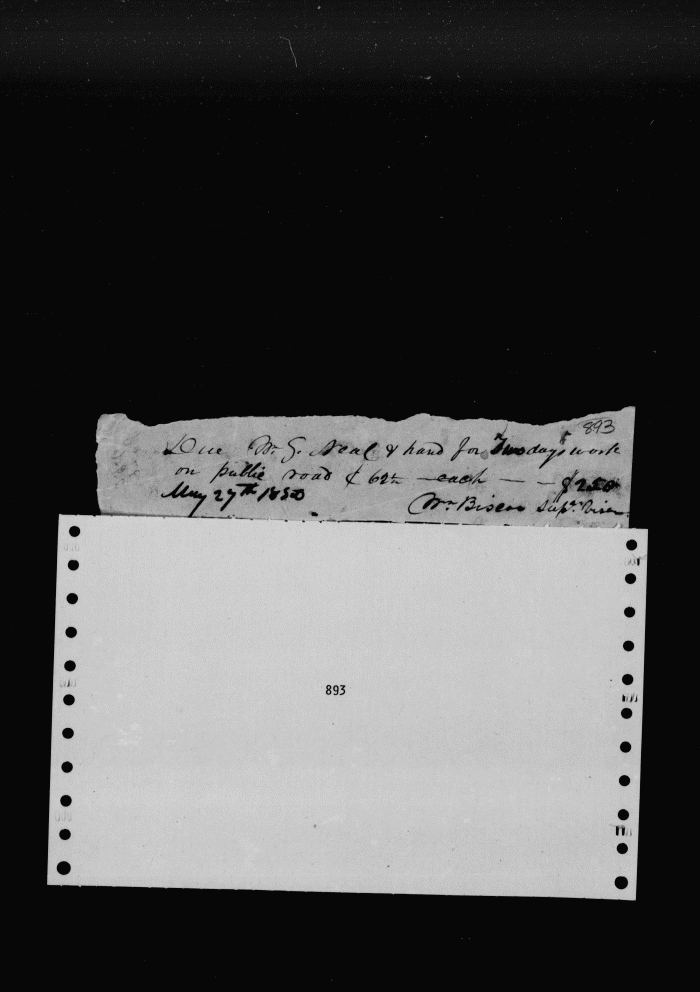 893
Due Wm. G. Neal & hand for Two days work
on public road ¢ 62½ each — — $2.50
May 27th 1850
Wm. Biscoe Supr. Visor
893